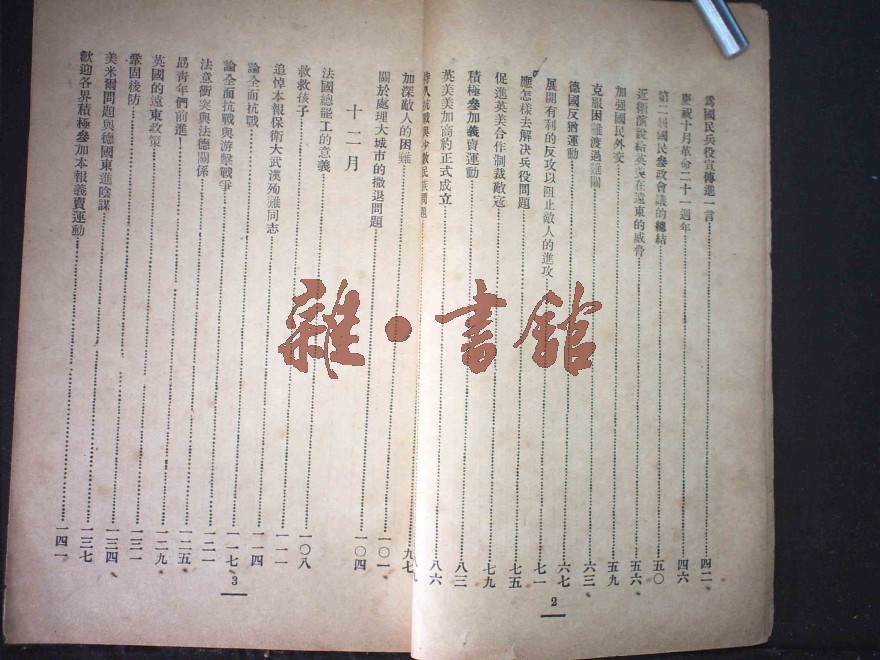 為國民兵役宣傳進一言 四二
慶祝十月革命二十一週年 四六
第二屆國民參政會議的總結 五〇
近衛演說給英美在遠東的威脅 五六
加強國民外交 五九
克服困難渡過難關 六三
德國反猶運動 六七
展開有利的反攻以阻止敵人的進攻 七一
應怎樣去解決兵役問題 七五
促進英美合作制裁敵寇 七九
積極參加義賣運動 八三
英美美加商約正式成立 八六
2
持久抗戰與少數民族問題
加深敵人的困難 九七
關於處理大城市的撤退問題 一〇一
十二月 一〇四
法國總罷工的意義
救救孩子 一〇八
追悼本報保衛大武漢殉難同志 一一一
論全面抗戰 一一四
論全面抗戰與游擊戰爭 一一七
法意衝突與法德關係 一二一
勗青年們前進！ 一二五
英國的遠東政策 一二九
鞏固後防 一三一
美米爾問題與德國東進陰謀 一三四
歡迎各界積極參加本報義賣運動 一三七
一四一
3
雜·書館